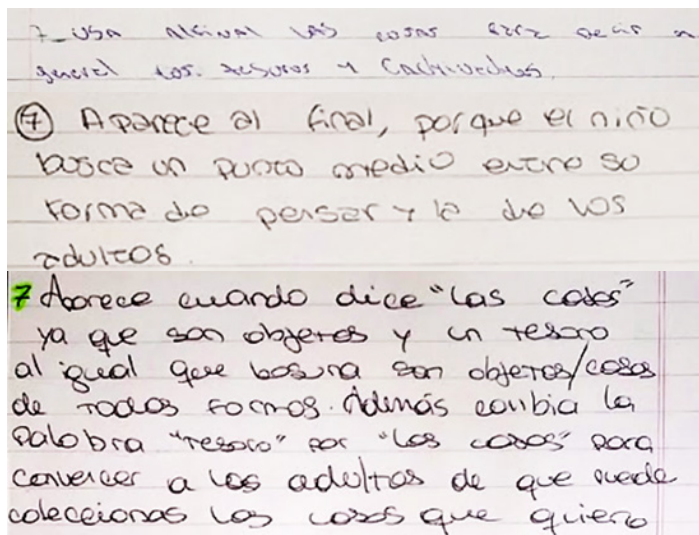 7_ USA Al final LAS cosas para decir en
general los tesoros y Cachivaches.
7 Aparece al final, porque el niño
busca un punto medio entre su
forma de pensar y la de los
adultos.
7 Aparece cuando dice "las cosas"
ya que son objetos y un tesoro
al igual que basura son objetos/cosas
de todas formas. Además cambia la
palabra "tesoro" por "las cosas" para
convencer a los adultos de que puede
coleccionas las cosas que quiero